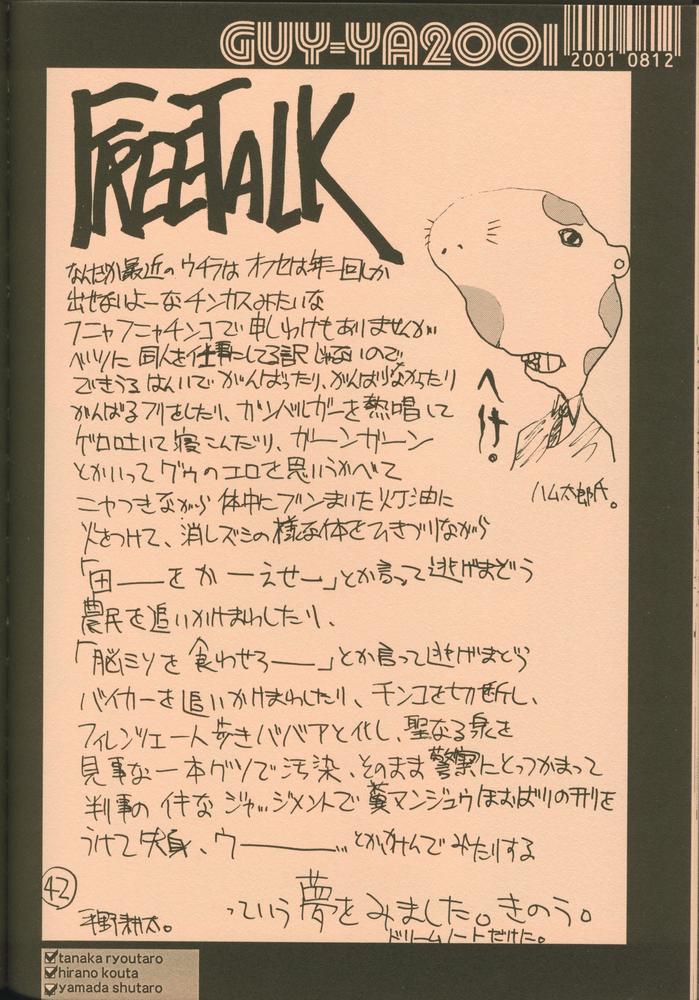 GUY-YA2001
2001 0812
FREETALK
なんだか最近のウチラはオフセは年一回しか
出せないよーなチンカスみたいな
フニャフニャチンコで申しわけもありませんが
べつに同人を仕事にしてる訳じゃないので
できうるはんいでがんばったり、がんばらなかったり
がんばるフリをしたり、ガンバルガーを熱唱して
ゲロ吐いて寝こんだり、ガーンガーン
とかいってグゥのエロを思いうかべて
ニヤつきながら体中にブンまいた灯油に
火をつけて、消しズミの様な体をひきづりながら
「田——をかーえせー」とか言って逃げまどう
農民を追いかけまわしたり、
「脳ミソを食わせろ——」とか言って逃げまどう
バイカーを追いかけまわしたり、チンコを切断し、
フィレンツェ一人歩きババアと化し、聖なる泉を
見事な一本グソで汚染、そのまま警察にとっつかまって
判事のイキなジャッジメントで糞マンジュウほおばりの刑を
うけて失身、ウ————… とかかんでみたりする
っていう夢をみました。きのう。
ドリームノートだけに。
へけ。
ハム太郎氏。
42
平野耕太。
tanaka ryoutaro
hirano kouta
yamada shutaro